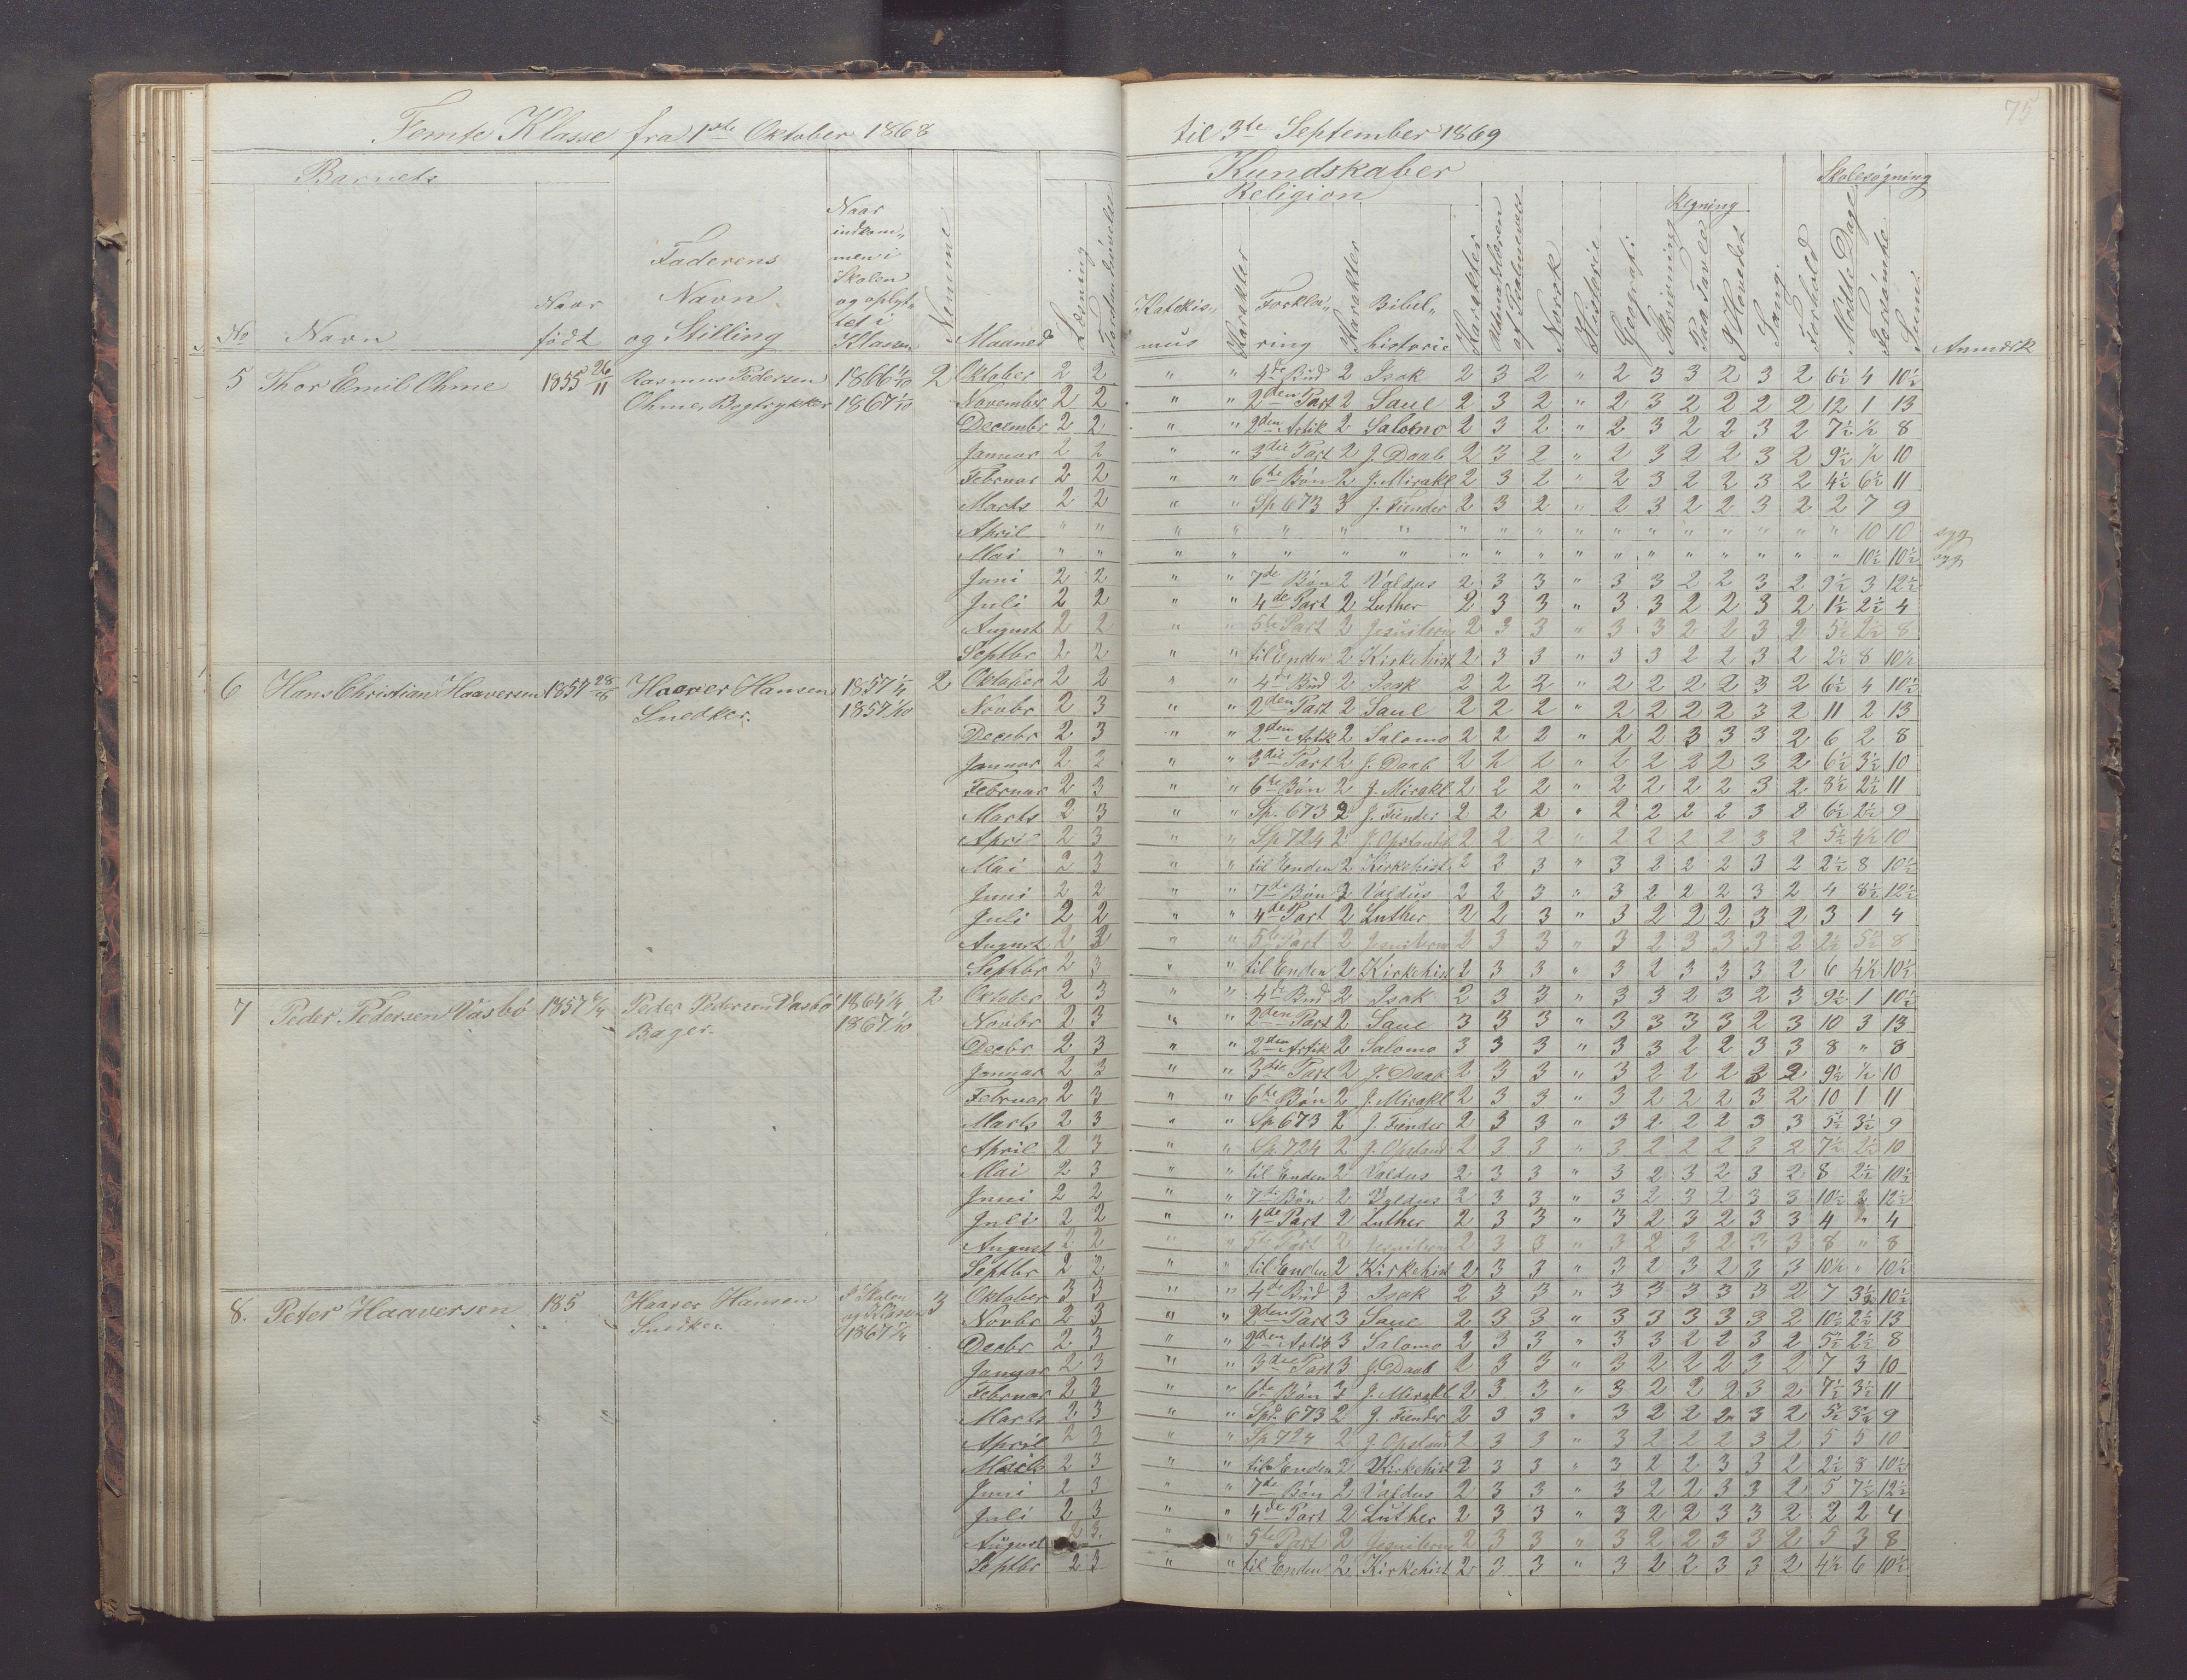 75
Femte Klasse fra 1ste Oktober 1868 til 3te September 1869
Barnets Kundskaber Skolesøgning
Religion Regning
No Navn Naar født Faderens Navn og Stilling Naar indkommen i Skolen og opflyttet i Klassen Nemme Maaned Læsning Katekismus Karakter Forklaring Karakter Bibelhistorie Karakter Udenadlæren af Psalmevers Norsk Historie Geografi Skrivning Paa Tavle I Hovedet Sang Forhold Mødte Dage Forsømte Sum Anmærk
5 Thor Emil Ohme 1855 26/11 Rasmus Pedersen 1866 1/10 2 Oktober 2 2 " " 4de Bud 2 Isak 2 3 2 " 2 3 3 2 3 2 6½ 4 10½
Ohme, Bogtrykker 1867 1/10 November 2 2 " " 2den Part 2 Saul 2 3 2 " 2 3 2 2 2 2 12 1 13
Decembr 2 2 " " 2den Artik 2 Salomo 2 3 2 " 2 3 2 2 3 2 7½ ½ 8
Januar 2 2 " " 3die Part 2 J. Daab 2 3 2 " 2 3 2 2 3 2 9½ ½ 10
Februar 2 2 " " 6te Bøn 2 J. Mirakl 2 3 2 " 2 3 2 2 3 2 4½ 6½ 11
Marts 2 2 " " Sp 673 3 J. Fiender 2 3 2 " 2 3 2 2 3 2 2 7 9
April " " " " " " " " " " " " " " " " " " 10 10 syg
Mai " " " " " " " " " " " " " " " " " " 10½ 10½ syg
Juni 2 2 " " 7de Bøn 2 Valdus 2 3 3 " 3 3 2 2 3 2 9½ 3 12½
Juli 2 2 " " 4de Part 2 Luther 2 3 3 " 3 3 2 2 3 2 1½ 2½ 4
August 2 2 " " 5te Part 2 Jesuitern 2 3 3 " 3 3 2 2 3 2 5½ 2½ 8
Septbr 2 2 " " til Enden 2 Kirkehist 2 3 3 " 3 3 2 2 3 2 2½ 8 10½
6 Hans Christian Haaversen 1857 28/8 Haaver Hansen 1857 1/4 2 Oktober 2 2 " " 4de Bud 2 Isak 2 2 2 " 2 2 2 2 3 2 6½ 4 10½
Snedker. 1857 1/10 Novbr 2 3 " " 2den Part 2 Saul 2 2 2 " 2 2 2 2 3 2 11 2 13
Decbr 2 3 " " 2den Artik 2 Salomo 2 2 2 " 2 2 3 3 3 2 6 2 8
Januar 2 2 " " 3die Part 2 J. Daab 2 2 2 " 2 2 2 2 3 2 6½ 3½ 10
Februar 2 3 " " 6te Bøn 2 J. Mirakl 2 2 2 " 2 2 2 2 3 2 8½ 2½ 11
Marts 2 3 " " Sp. 673 2 J. Fiender 2 2 2 " 2 2 2 2 3 2 6½ 2½ 9
April 2 3 " " Sp 724 2 J. Opstand 2 2 2 " 2 2 2 2 3 2 5½ 4½ 10
Mai 2 3 " " til Enden 2 Kirkehist 2 2 3 " 3 2 2 2 3 2 2½ 8 10½
Juni 2 2 " " 7de Bøn 2 Valdus 2 2 3 " 3 2 2 2 3 2 4 8½ 12½
Juli 2 2 " " 4de Part 2 Luther 2 2 3 " 3 2 2 2 3 2 3 1 4
August 2 2 " " 5te Part 2 Jesuitern 2 3 3 " 3 2 3 3 3 2 2½ 5½ 8
Septbr 2 3 " " til Enden 2 Kirkehist 2 3 3 " 3 2 3 3 3 2 6 4½ 10½
7 Peder Pedersen Vasbø 1857 Peder Pedersen Vasbø 1864 1/4 2 Oktober 2 3 " " 4de Bud 2 Isak 2 3 3 " 3 3 2 3 2 3 9½ 1 10½
Bager. 1867 1/10 Novbr 2 3 " " 2den Part 2 Saul 3 3 3 " 3 3 3 3 2 3 10 3 13
Decbr 2 3 " " 2den Artik 2 Salomo 3 3 3 " 3 3 2 2 3 3 8 " 8
Januar 2 2 " " 3die Part 2 J. Daab 2 3 3 " 3 2 2 2 2 2 9½ ½ 10
Februar 2 3 " " 6te Bøn 2 J. Mirakl 2 3 3 " 3 2 2 2 3 2 10 1 11
Marts 2 3 " " Sp 673 2 J. Fiender 2 3 3 " 3 2 2 2 3 3 5½ 3½ 9
April 2 3 " " Sp. 724 2 J. Opstand 2 3 3 " 3 2 2 2 3 2 7½ 2½ 10
Mai 2 3 " " til Enden 2 Valdus 2 3 3 " 3 2 3 2 3 2 8 2½ 10½
Juni 2 2 " " 7de Bøn 2 Valdus 2 3 3 " 3 2 3 2 3 3 10½ 2 12½
Juli 2 2 " " 4de Part 2 Luther 2 3 3 " 3 2 3 2 3 3 4 " 4
August 2 2 " " 5te Part 2 Jesuitern 2 3 3 " 3 2 3 2 3 3 8 " 8
Septbr 2 2 " " til Enden 2 Kirkehist 2 3 3 " 3 2 3 2 3 3 10½ " 10½
8. Peter Haaversen 185 Haaver Hansen I Skolen 3 Oktober 3 3 " " 4de Bud 3 Isak 2 3 3 " 3 3 3 3 3 2 7 3½ 10½
Snedker. og Klassen Novbr 2 3 " " 2den Part 3 Saul 2 3 3 " 3 3 3 3 3 2 10½ 2½ 13
1867 1/4 Decbr 2 3 " " 2den Artik 3 Salomo 2 3 3 " 3 3 2 2 3 2 5½ 2½ 8
Januar 2 3 " " 3die Part 3 J. Daab 2 3 3 " 3 2 2 2 3 2 7 3 10
Februar 2 3 " " 6te Bøn 3 J. Mirakl 2 3 3 " 3 2 2 2 3 2 7½ 3½ 11
Marts 2 3 " " Spr. 673 2 J. Fiender 2 3 3 " 3 2 2 2 3 2 5½ 3½ 9
April 2 3 " " Sp 724 2 J. Opstand 2 3 3 " 3 2 2 2 3 2 5 5 10
2 3 " " til Enden 2 Kirkehist 2 3 3 " 3 2 2 3 3 2 2½ 8 10½
Juni 2 3 " " 7de Bøn 2 Valdus 2 3 3 " 3 2 2 3 3 2 5 7½ 12½
Juli 2 3 " " 4de Part 2 Luther 2 3 3 " 3 2 2 3 3 2 2 2 4
August 2 3 " " 5te Part 2 Jesuitern 2 3 3 " 3 2 2 3 3 2 5 3 8
Septbr 2 3 " " til Enden 2 Kirkehist 2 3 3 " 3 2 2 3 3 2 4½ 6 10½